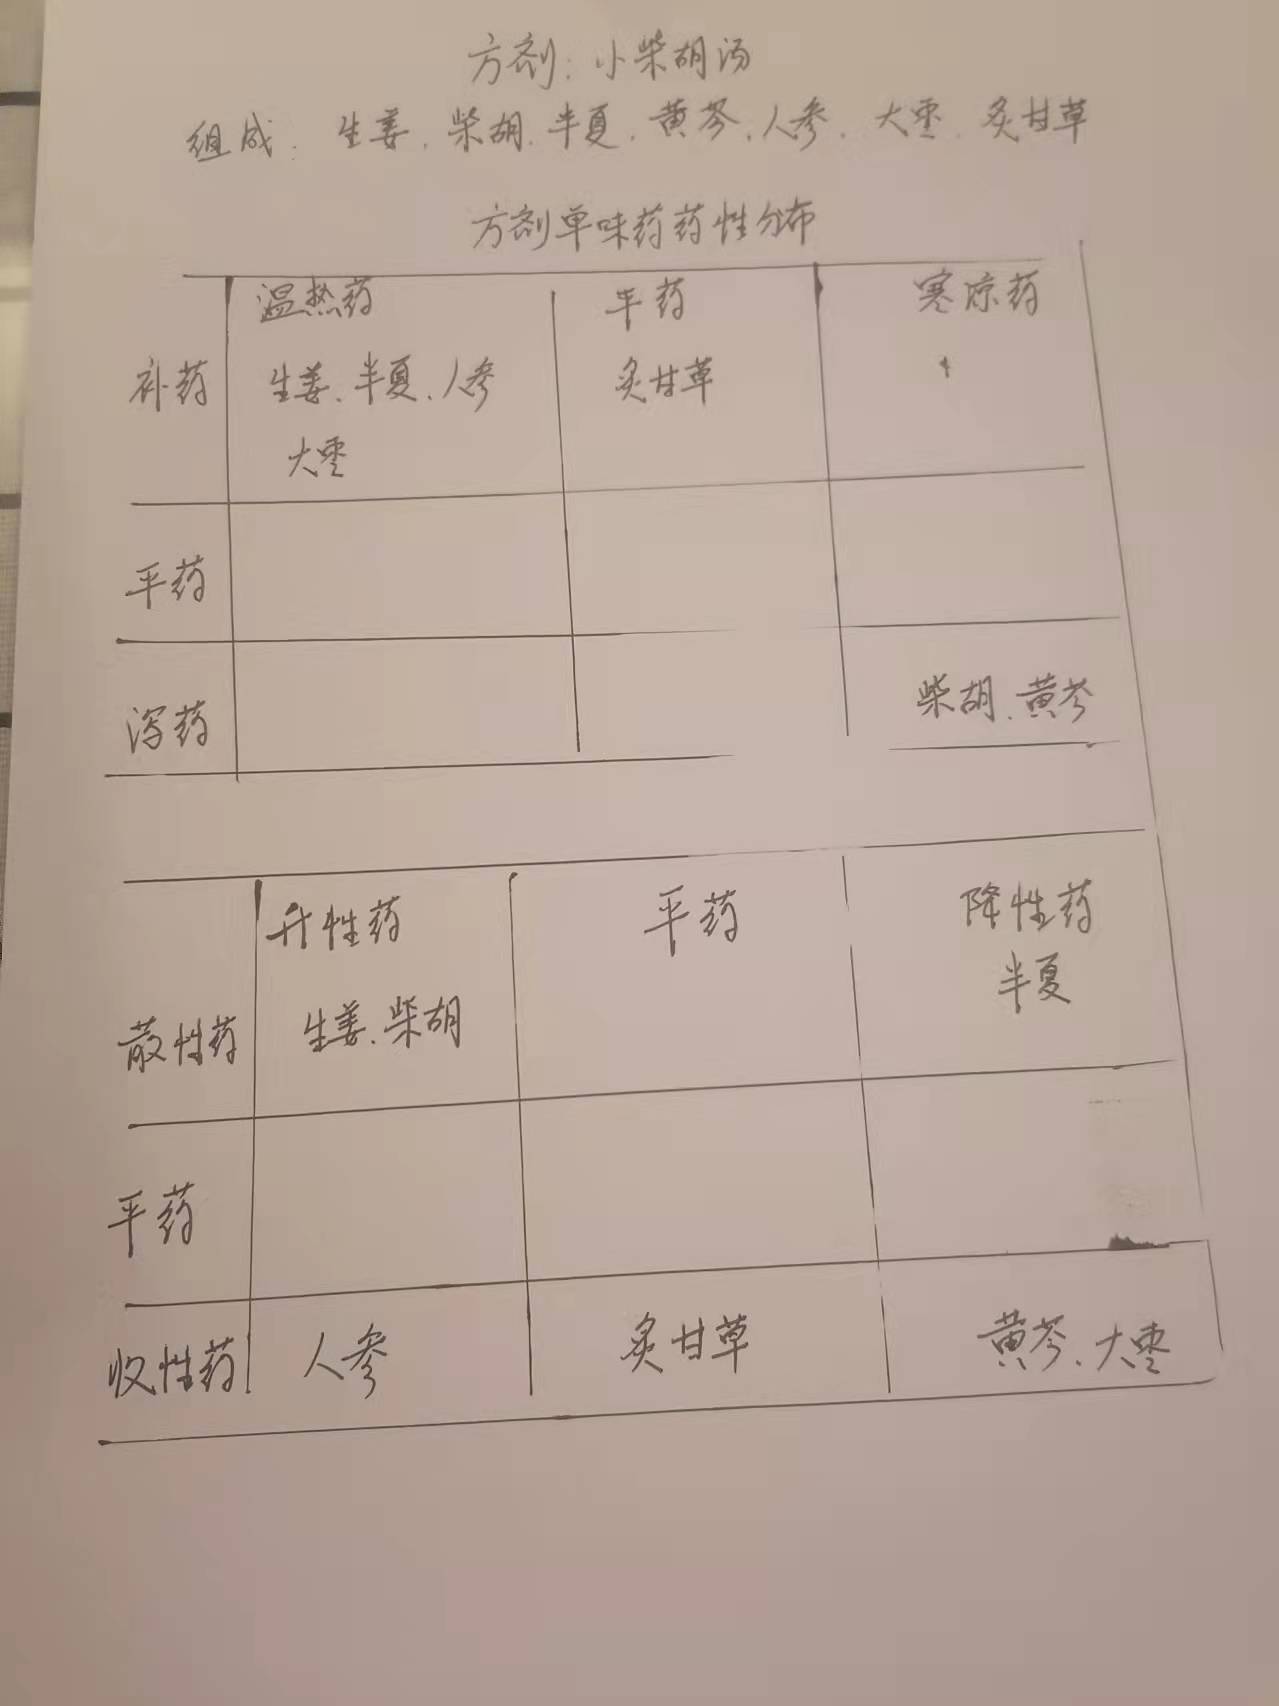 方剂：小柴胡汤
组成：生姜、柴胡、半夏、黄芩、人参、大枣、炙甘草
方剂单味药药性分布
温热药 平药 寒凉药
补药 生姜、半夏、人参 炙甘草
大枣
平药
泻药 柴胡、黄芩
升性药 平药 降性药
半夏
散性药 生姜、柴胡
平药
收性药 人参 炙甘草 黄芩、大枣